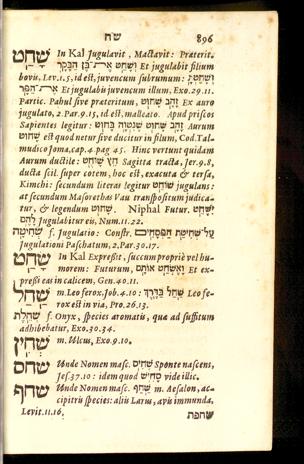 ש״ח 896
שָׁחַט In Kal Jugulavit, Mactavit: Præterit.
וְשָׁחַט אֶת־בֶּן הַבָּקָר Et jugulabit filium
bovis, Lev.1.5, id est, juvencum subrumum:
וְשָׁחַטְתָּ אֶת־הַפָּר Et jugulabis juvencum illum, Exo.29.11.
Partic. Pahul sive præteritum, זָהָב שָׁחוּט Ex auro
jugulato, 2.Par.9.15, id est, malleato. Apud priscos
Sapientes legitur: זָהָב שָׁחוּט שֶׁנִּטְוֶה כְּחוּט Aurum
שָׁחוּט est quod netur sive ducitur in filum, Cod. Tal-
mudico Joma, cap.4. pag 45. Hinc vertunt quidam
Aurum ductile: חֵץ שָׁחוּט Sagitta tracta, Jer.9.8,
ducta scil. super cotem, hoc est, exacuta & tersa,
Kimchi: secundum literas legitur שׁוֹחֵט jugulans:
at secundum Masorethas Vau transpositum judica-
tur, & legendum שָׁחוּט. Niphal Futur. יִשָּׁחֵט
לָהֶם Jugulabitur eis, Num.11.22.
שְׁחִיטָה f. Jugulatio: Constr. עַל־שְׁחִיטַת הַפְּסָחִים
Jugulationi Paschatum, 2.Par.30.17.
שָׂחַט In Kal Expressit, succum propriè vel hu-
morem: Futurum, וָאֶשְׂחַט אוֹתָם Et ex-
pressi eas in calicem, Gen.40.11.
שַׁחַל m. Leo ferox, Job.4.10: שַׁחַל בַּדָּרֶךְ Leo fe-
rox est in via, Pro.26.13.
שְׁחֵלֶת f. Onyx, species aromatis, quæ ad suffitum
adhibebatur, Exo.30.34.
שְׁחִין m. Ulcus, Exo.9.10.
שחס Unde Nomen masc. שָׁחִיס Sponte nascens,
Jes.37.30: idem quod סָחִישׁ vide illic.
שחף Unde Nomen masc. שַׁחַף m. Aesalon, ac-
cipitris species: aliis Larus, avis immunda,
Levit.11.16.
שחפת